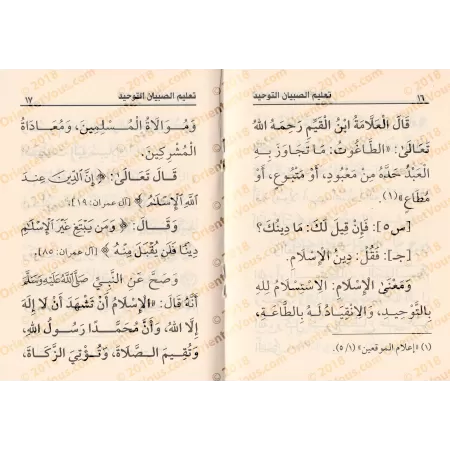 تعليم الصبيان التوحيد
١٦
قَالَ العَلَّامَةُ ابْنُ القَيِّمِ رَحِمَهُ اللهُ
تَعَالَى: «الطَّاغُوتُ: مَا تَجَاوَزَ بِهِ
العَبْدُ حَدَّهُ مِنْ مَعْبُودٍ، أَوْ مَتْبُوعٍ، أَوْ
مُطَاعٍ»(١).
[س٥]: فَإِنْ قِيلَ لَكَ: مَا دِينُكَ؟
[جـ]: فَقُلْ: دِينُ الإِسْلَامِ.
وَمَعْنَى الإِسْلَامِ: الاسْتِسْلَامُ لِلهِ
بِالتَّوْحِيدِ، وَالانْقِيَادُ لَهُ بِالطَّاعَةِ،
(١) «إعلام الموقعين» (٥/١).
تعليم الصبيان التوحيد
١٧
وَمُوَالَاةُ المُسْلِمِينَ، وَمُعَادَاةُ
المُشْرِكِينَ.
قَالَ تَعَالَى: ﴿إِنَّ الدِّينَ عِندَ
اللَّهِ الْإِسْلَامُ﴾ [آل عمران: ١٩].
وَقَالَ: ﴿وَمَن يَبْتَغِ غَيْرَ الْإِسْلَامِ
دِينًا فَلَن يُقْبَلَ مِنْهُ﴾ [آل عمران: ٨٥].
وَصَحَّ عَنِ النَّبِيِّ صَلَّى اللهُ عَلَيْهِ وَسَلَّمَ
أَنَّهُ قَالَ: «الإِسْلَامُ أَنْ تَشْهَدَ أَنْ لَا إِلَهَ
إِلَّا اللهُ، وَأَنَّ مُحَمَّدًا رَسُولُ اللهِ،
وَتُقِيمَ الصَّلَاةَ، وَتُؤْتِيَ الزَّكَاةَ،